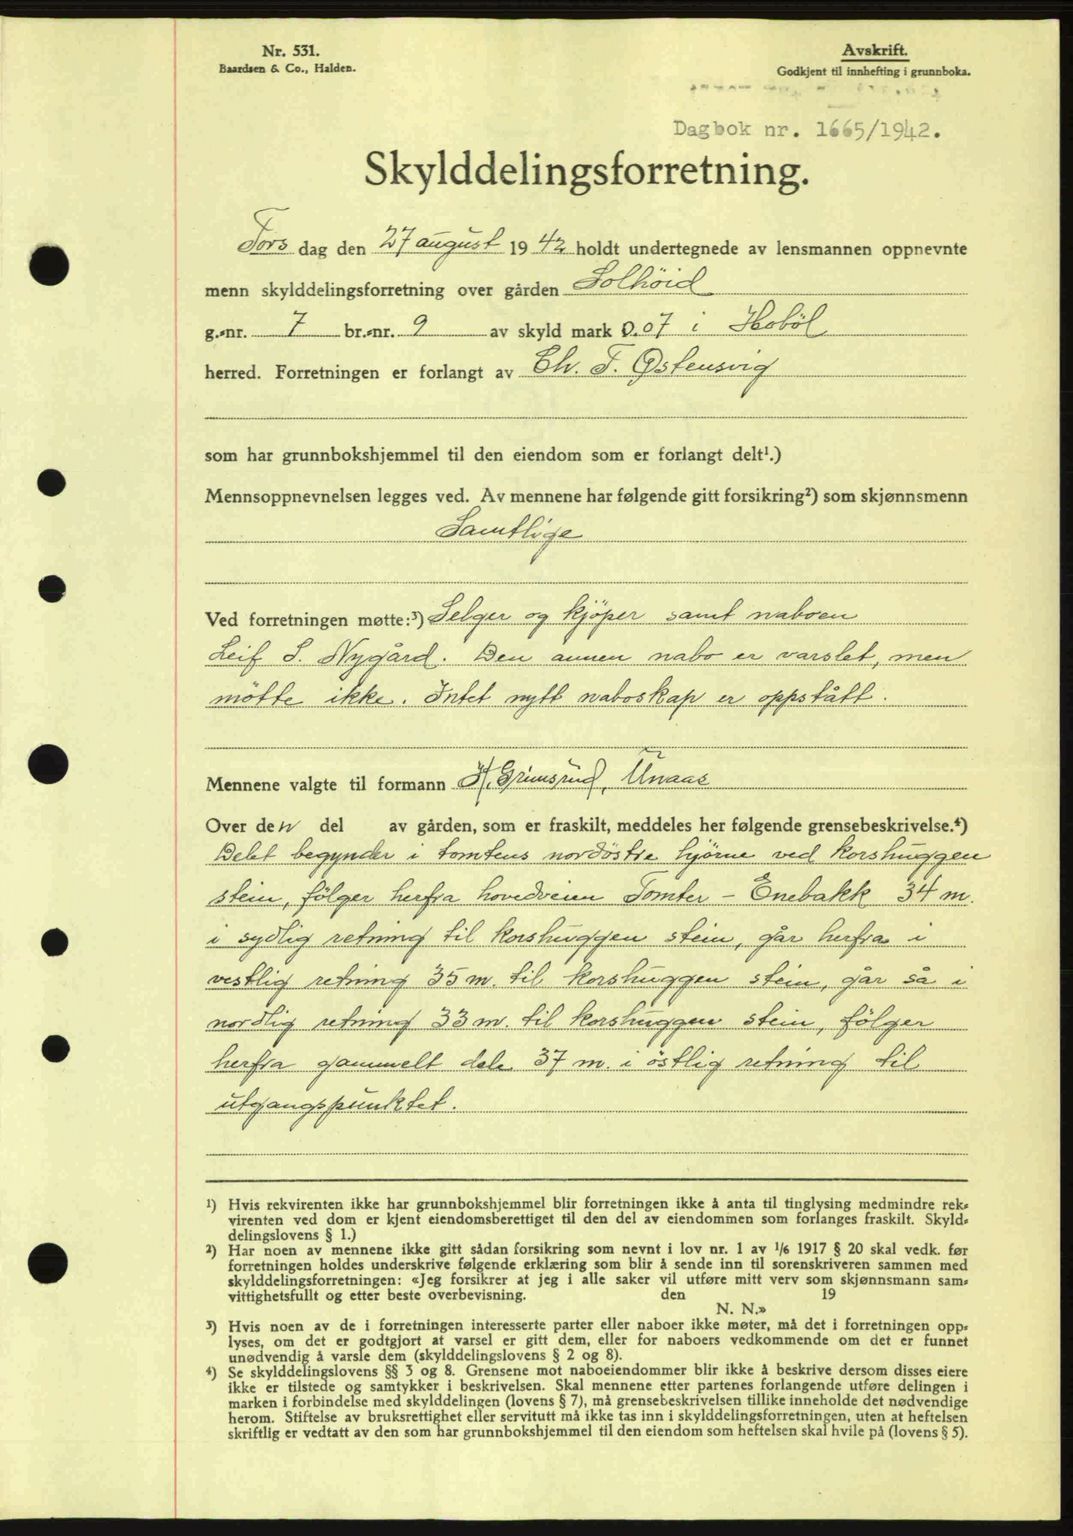 Nr. 531.
Baardsen & Co., Halden.
Avskrift.
Godkjent til innhefting i grunnboka.
Dagbok nr. 1665/1942.
Skylddelingsforretning.
Tors dag den 27 august 1942 holdt undertegnede av lensmannen oppnevnte
menn skylddelingsforretning over gården Solhöid
g.-nr. 7 br.-nr. 9 av skyld mark 0.07 i Hoböl
herred. Forretningen er forlangt av Chr. F. Østensvig
som har grunnbokshjemmel til den eiendom som er forlangt delt¹.)
Mennsoppnevnelsen legges ved. Av mennene har følgende gitt forsikring²) som skjønnsmenn
Samtlige
Ved forretningen møtte:³) Selger og kjöper samt naboen
Leif S. Nygård. Den annen nabo er varslet, men
mötte ikke. Intet nytt naboskap er oppstått.
Mennene valgte til formann H. Grimsrud,
Over den del av gården, som er fraskilt, meddeles her følgende grensebeskrivelse.⁴)
Delet begynder i tomtens nordöstre hjörne ved korshuggen
stein, fölger herfra hovedveien Tomter - Enebakk 34 m.
i sydlig retning til korshuggen stein, går herfra i
vestlig retning 35 m. til korshuggen stein, går så i
nordlig retning 33 m. til korshuggen stein, fölger
herfra gammelt dele 37 m. i östlig retning til
utgangspunktet.
¹) Hvis rekvirenten ikke har grunnbokshjemmel blir forretningen ikke å anta til tinglysing medmindre rek-
virenten ved dom er kjent eiendomsberettiget til den del av eiendommen som forlanges fraskilt. Skyld-
delingslovens § 1.)
²) Har noen av mennene ikke gitt sådan forsikring som nevnt i lov nr. 1 av 1/6 1917 § 20 skal vedk. før
forretningen holdes underskrive følgende erklæring som blir å sende inn til sorenskriveren sammen med
skylddelingsforretningen: «Jeg forsikrer at jeg i alle saker vil utføre mitt verv som skjønnsmann sam-
vittighetsfullt og etter beste overbevisning. den 19
N. N.»
³) Hvis noen av de i forretningen interesserte parter eller naboer ikke møter, må det i forretningen opp-
lyses, om det er godtgjort at varsel er gitt dem, eller for naboers vedkommende om det er funnet
unødvendig å varsle dem (skylddelingslovens § 2 og 8).
⁴) Se skylddelingslovens §§ 3 og 8. Grensene mot naboeiendommer blir ikke å beskrive dersom disses eiere
ikke er tilstede og samtykker i beskrivelsen. Skal mennene etter partenes forlangende utføre delingen i
marken i forbindelse med skylddelingen (lovens § 7), må grensebeskrivelsen tillike inneholde det nødvendige
herom. Stiftelse av bruksrettighet eller servitutt må ikke tas inn i skylddelingsforretningen, uten at heftelsen
skriftlig er vedtatt av den som har grunnbokshjemmel til den eiendom som heftelsen skal hvile på (lovens § 5).